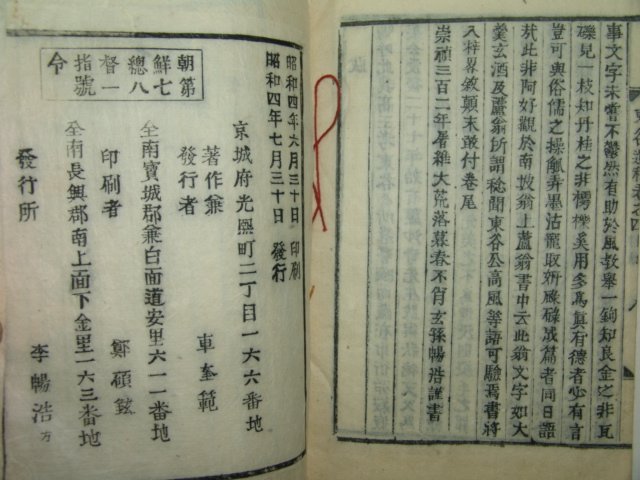 事文字未嘗不鬱然有助於風敎擧一鉤知良金之非瓦
礫見一枝知丹桂之非樗櫟奚用多爲眞有德者必有言
豈可與俗儒之操觚弄墨沽寵取斯碌碌成篇者同日語
哉此非阿好觀於南坡翁上蘆翁書中云此翁文字如大
羹玄酒及蘆翁所謂稔聞東谷公高風等語可驗焉書將
入梓畧敘顚末叢付卷尾
崇禎三百二年屠雜大荒落暮春不肖玄孫暢浩謹書
昭和四年六月三十日 印刷
昭和四年七月三十日 發行
京城府光熙町二丁目一六六番地
著作兼
發行者 車奎範
全南寶城郡兼白面道安里六一一番地
印刷者 鄭碩鉉
全南長興郡南上面下金里一六三番地
發行所 李暢浩方
朝鮮總督
第七八一號
指令